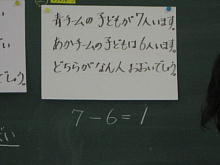 青チームの子どもが7人います。
あかチームの子どもは6人います。
どちらがなん人おおいでしょう。
7-6=1